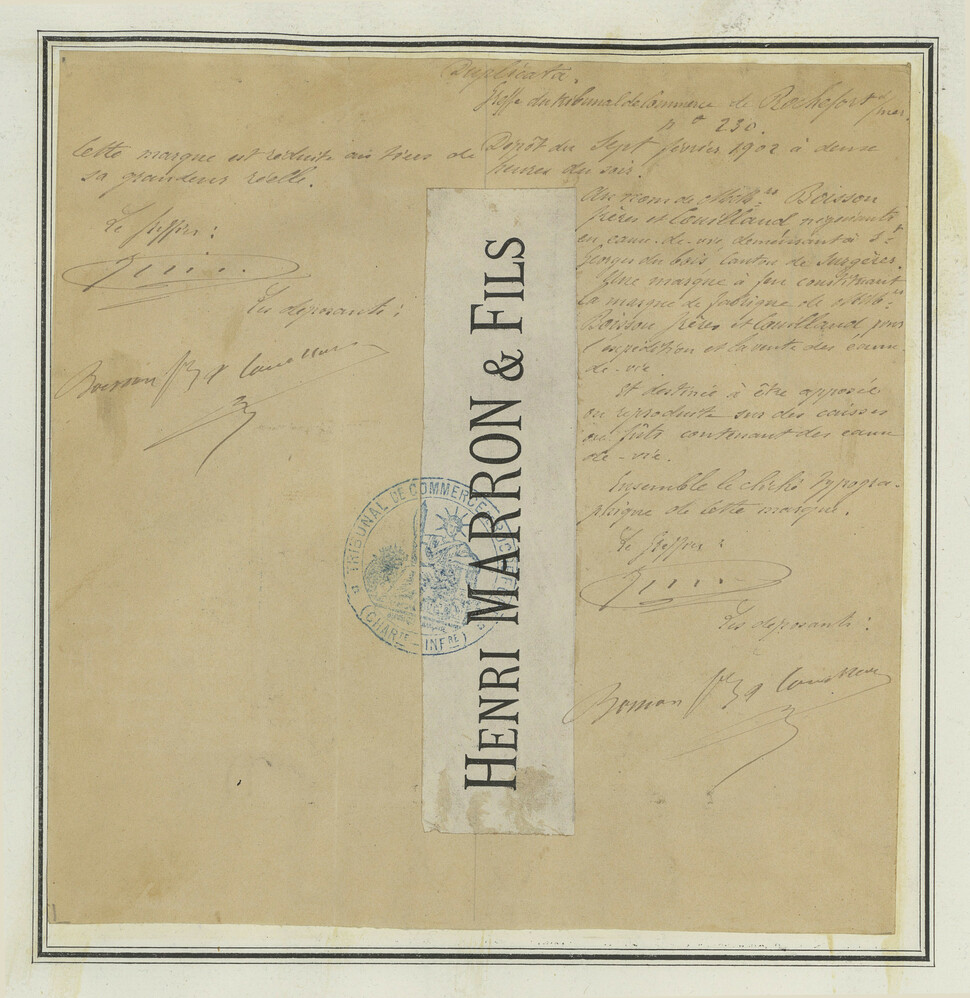 Duplicata.
Greffe du tribunal de Commerce de Rochefort s/mer.
n° 230.
Dépôt du Sept février 1902 à deux
heures du soir.
Cette marque est réduite au tiers de
sa grandeur réelle.
Le Greffier :
Les déposants :
Boisson frs & Couilland
HENRI MARRON & FILS
TRIBUNAL DE COMMERCE ROCHEFORT
(CHARTE - INFRE)
Au nom de MM. Boisson
frères et Couilland négociants
en eaux-de-vie, demeurant à St
Georges du bois Canton de Surgères.
Une marque à feu constituant
la marque de fabrique de MM.
Boisson frères et Couilland pour
l'expédition et la vente des eaux-
de-vie.
Et destinée à être apposée
ou reproduite sur des caisses
ou fûts contenant des eaux
de-vie.
Ensemble le cliché typogra-
phique de cette marque.
Le Greffier :
Les déposants :
Boisson frs & Couilland